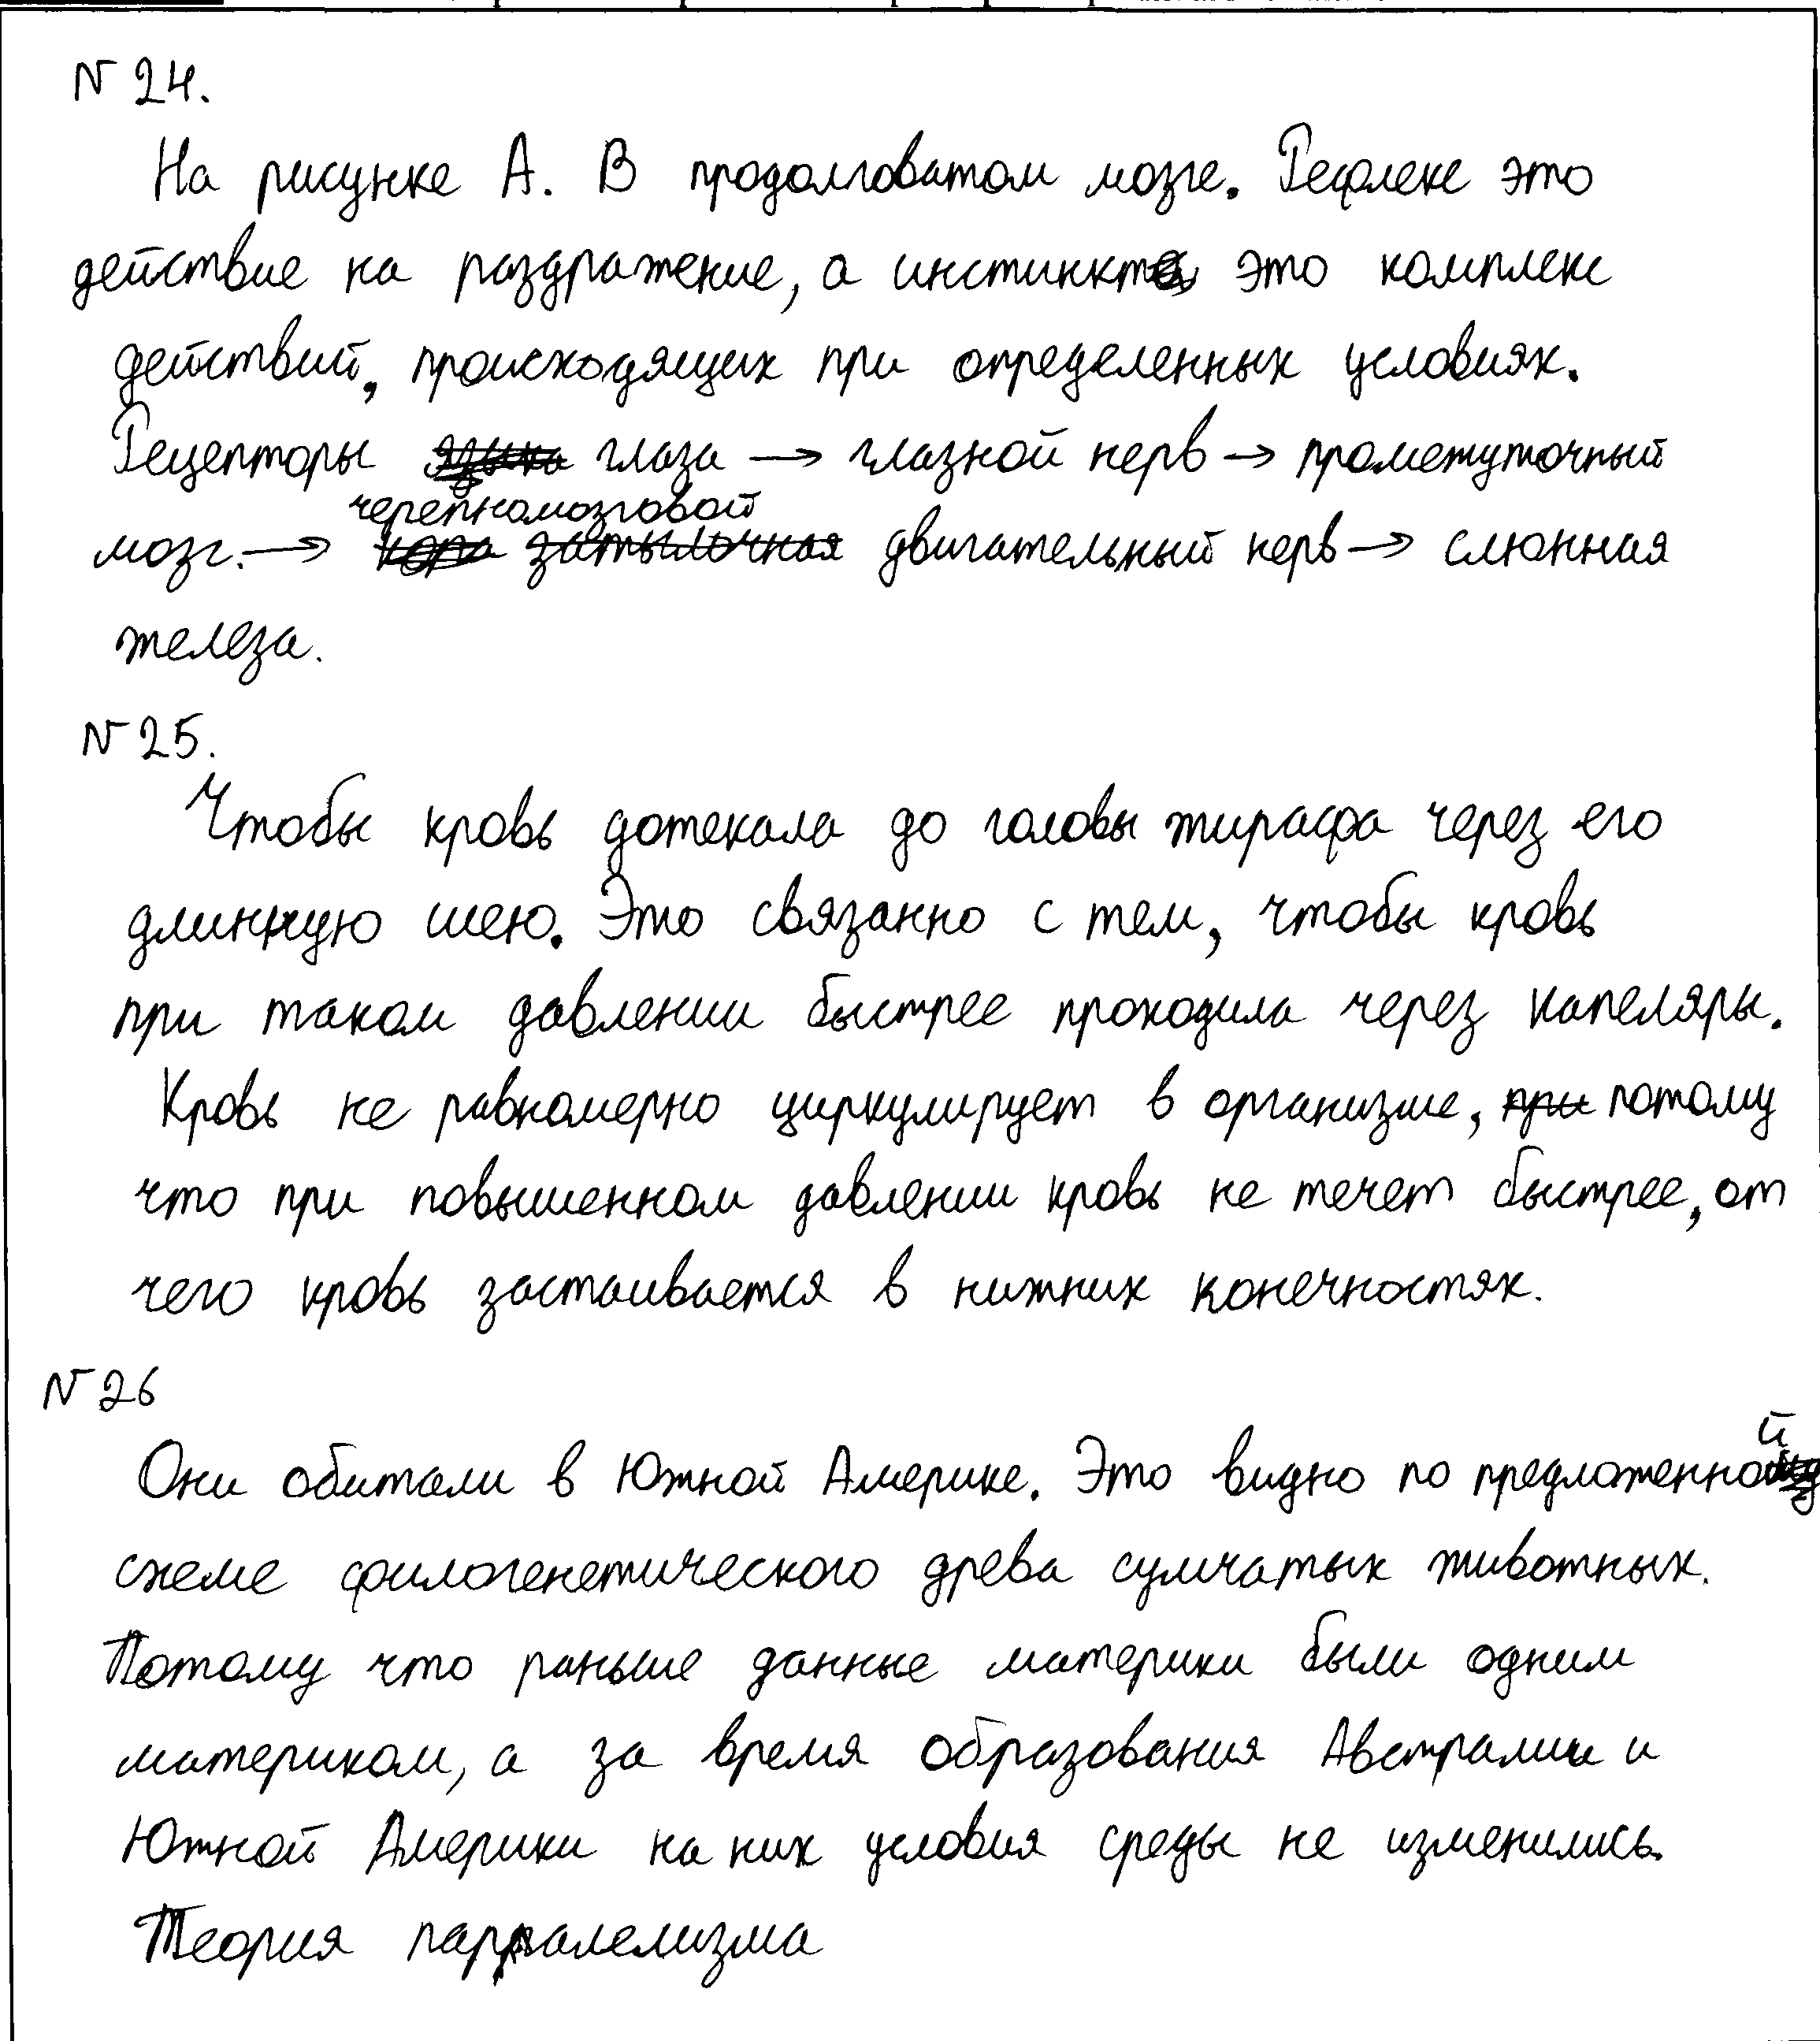 N 24.
На рисунке А. В продолговатом мозге. Рефлекс это
действие на раздражение, а инстинкт это комплекс
действий, происходящих при определенных условиях.
Рецепторы глаза → глазной нерв → промежуточный
черепномозговой
мозг. → двигательный нерв → слюнная
железа.
N 25.
Чтобы кровь дотекала до головы жирафа через его
длинную шею. Это связанно с тем, чтобы кровь
при таком давлении быстрее проходила через капеляры.
Кровь не равномерно циркулирует в организме, при потому
что при повышенном давлении кровь не течет быстрее, от
чего кровь застаивается в нижних конечностях.
N 26
Они обитали в Южной Америке. Это видно по предложенной
схеме филогенетического древа сумчатых животных.
Потому что раньше данные материки были одним
материком, а за время образования Австралии и
Южной Америки на них условия среды не изменились.
Теория парралелизма